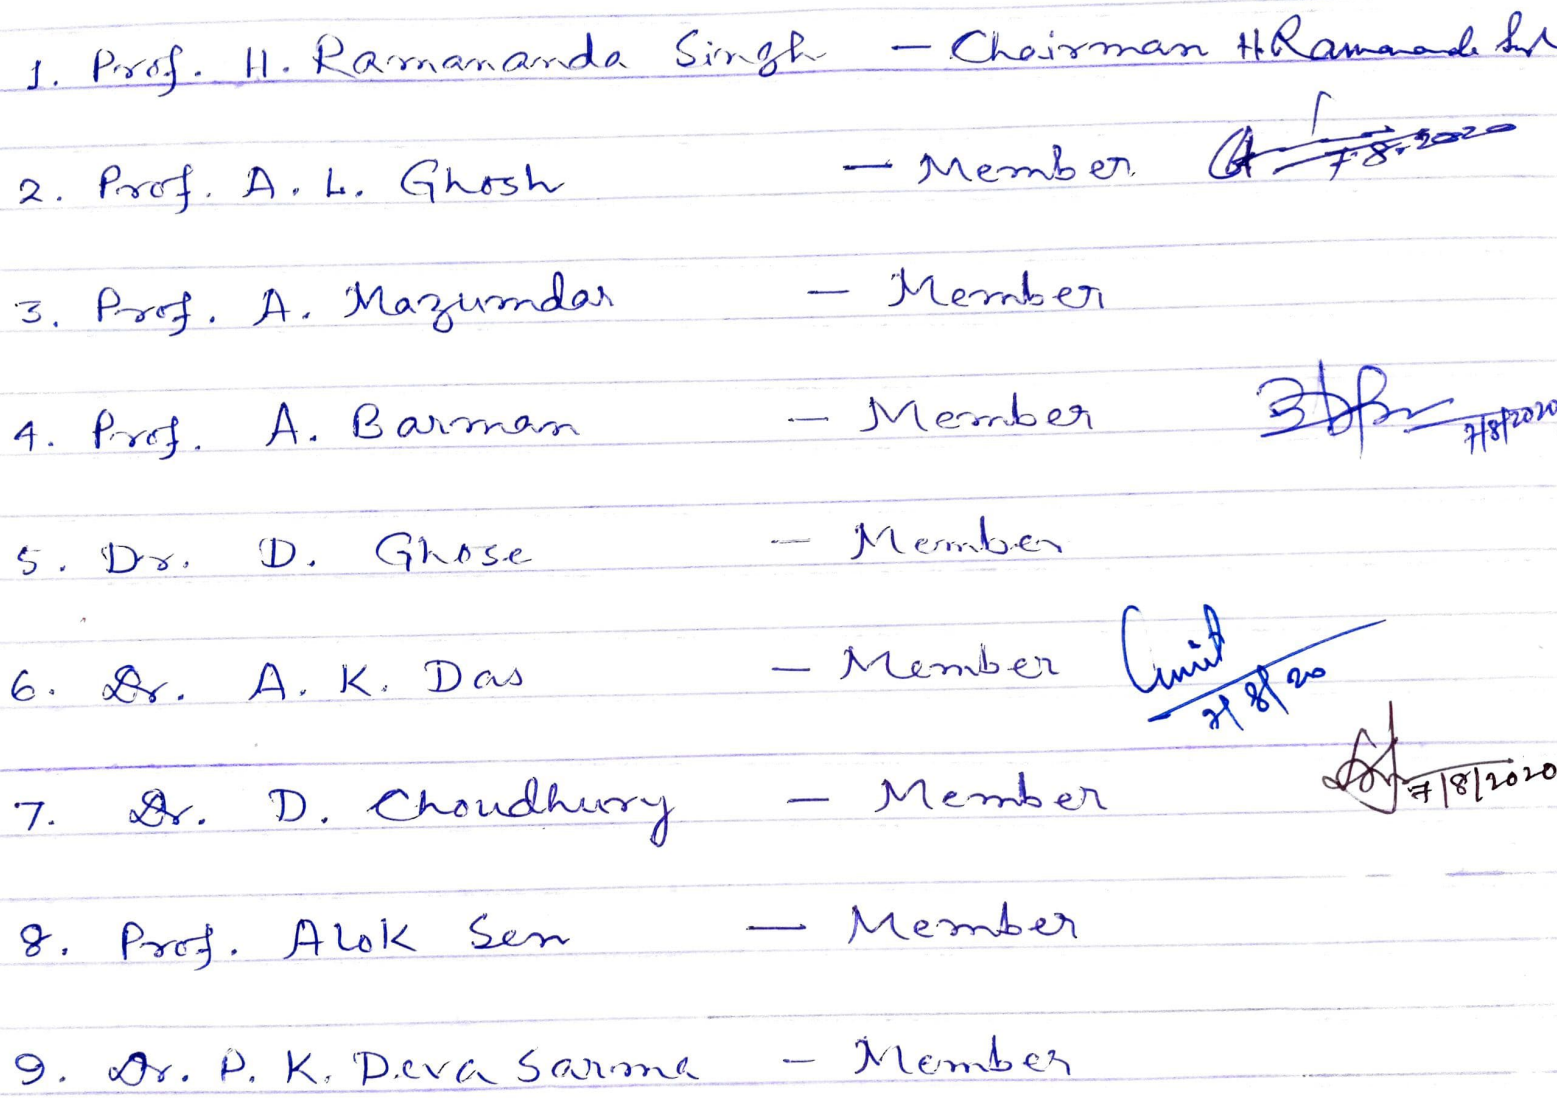 1. Prof. H. Ramananda Singh - Chairman H Ramananda
2. Prof. A. L. Ghosh - Member 7.8.2020
3. Prof. A. Mazumdar - Member
4. Prof. A. Barman - Member 7/8/2020
5. Dr. D. Ghose - Member
6. Dr. A. K. Das - Member 7/8/20
7. Dr. D. Choudhury - Member 7/8/2020
8. Prof. Alok Sen - Member
9. Dr. P. K. Deva Sarma - Member